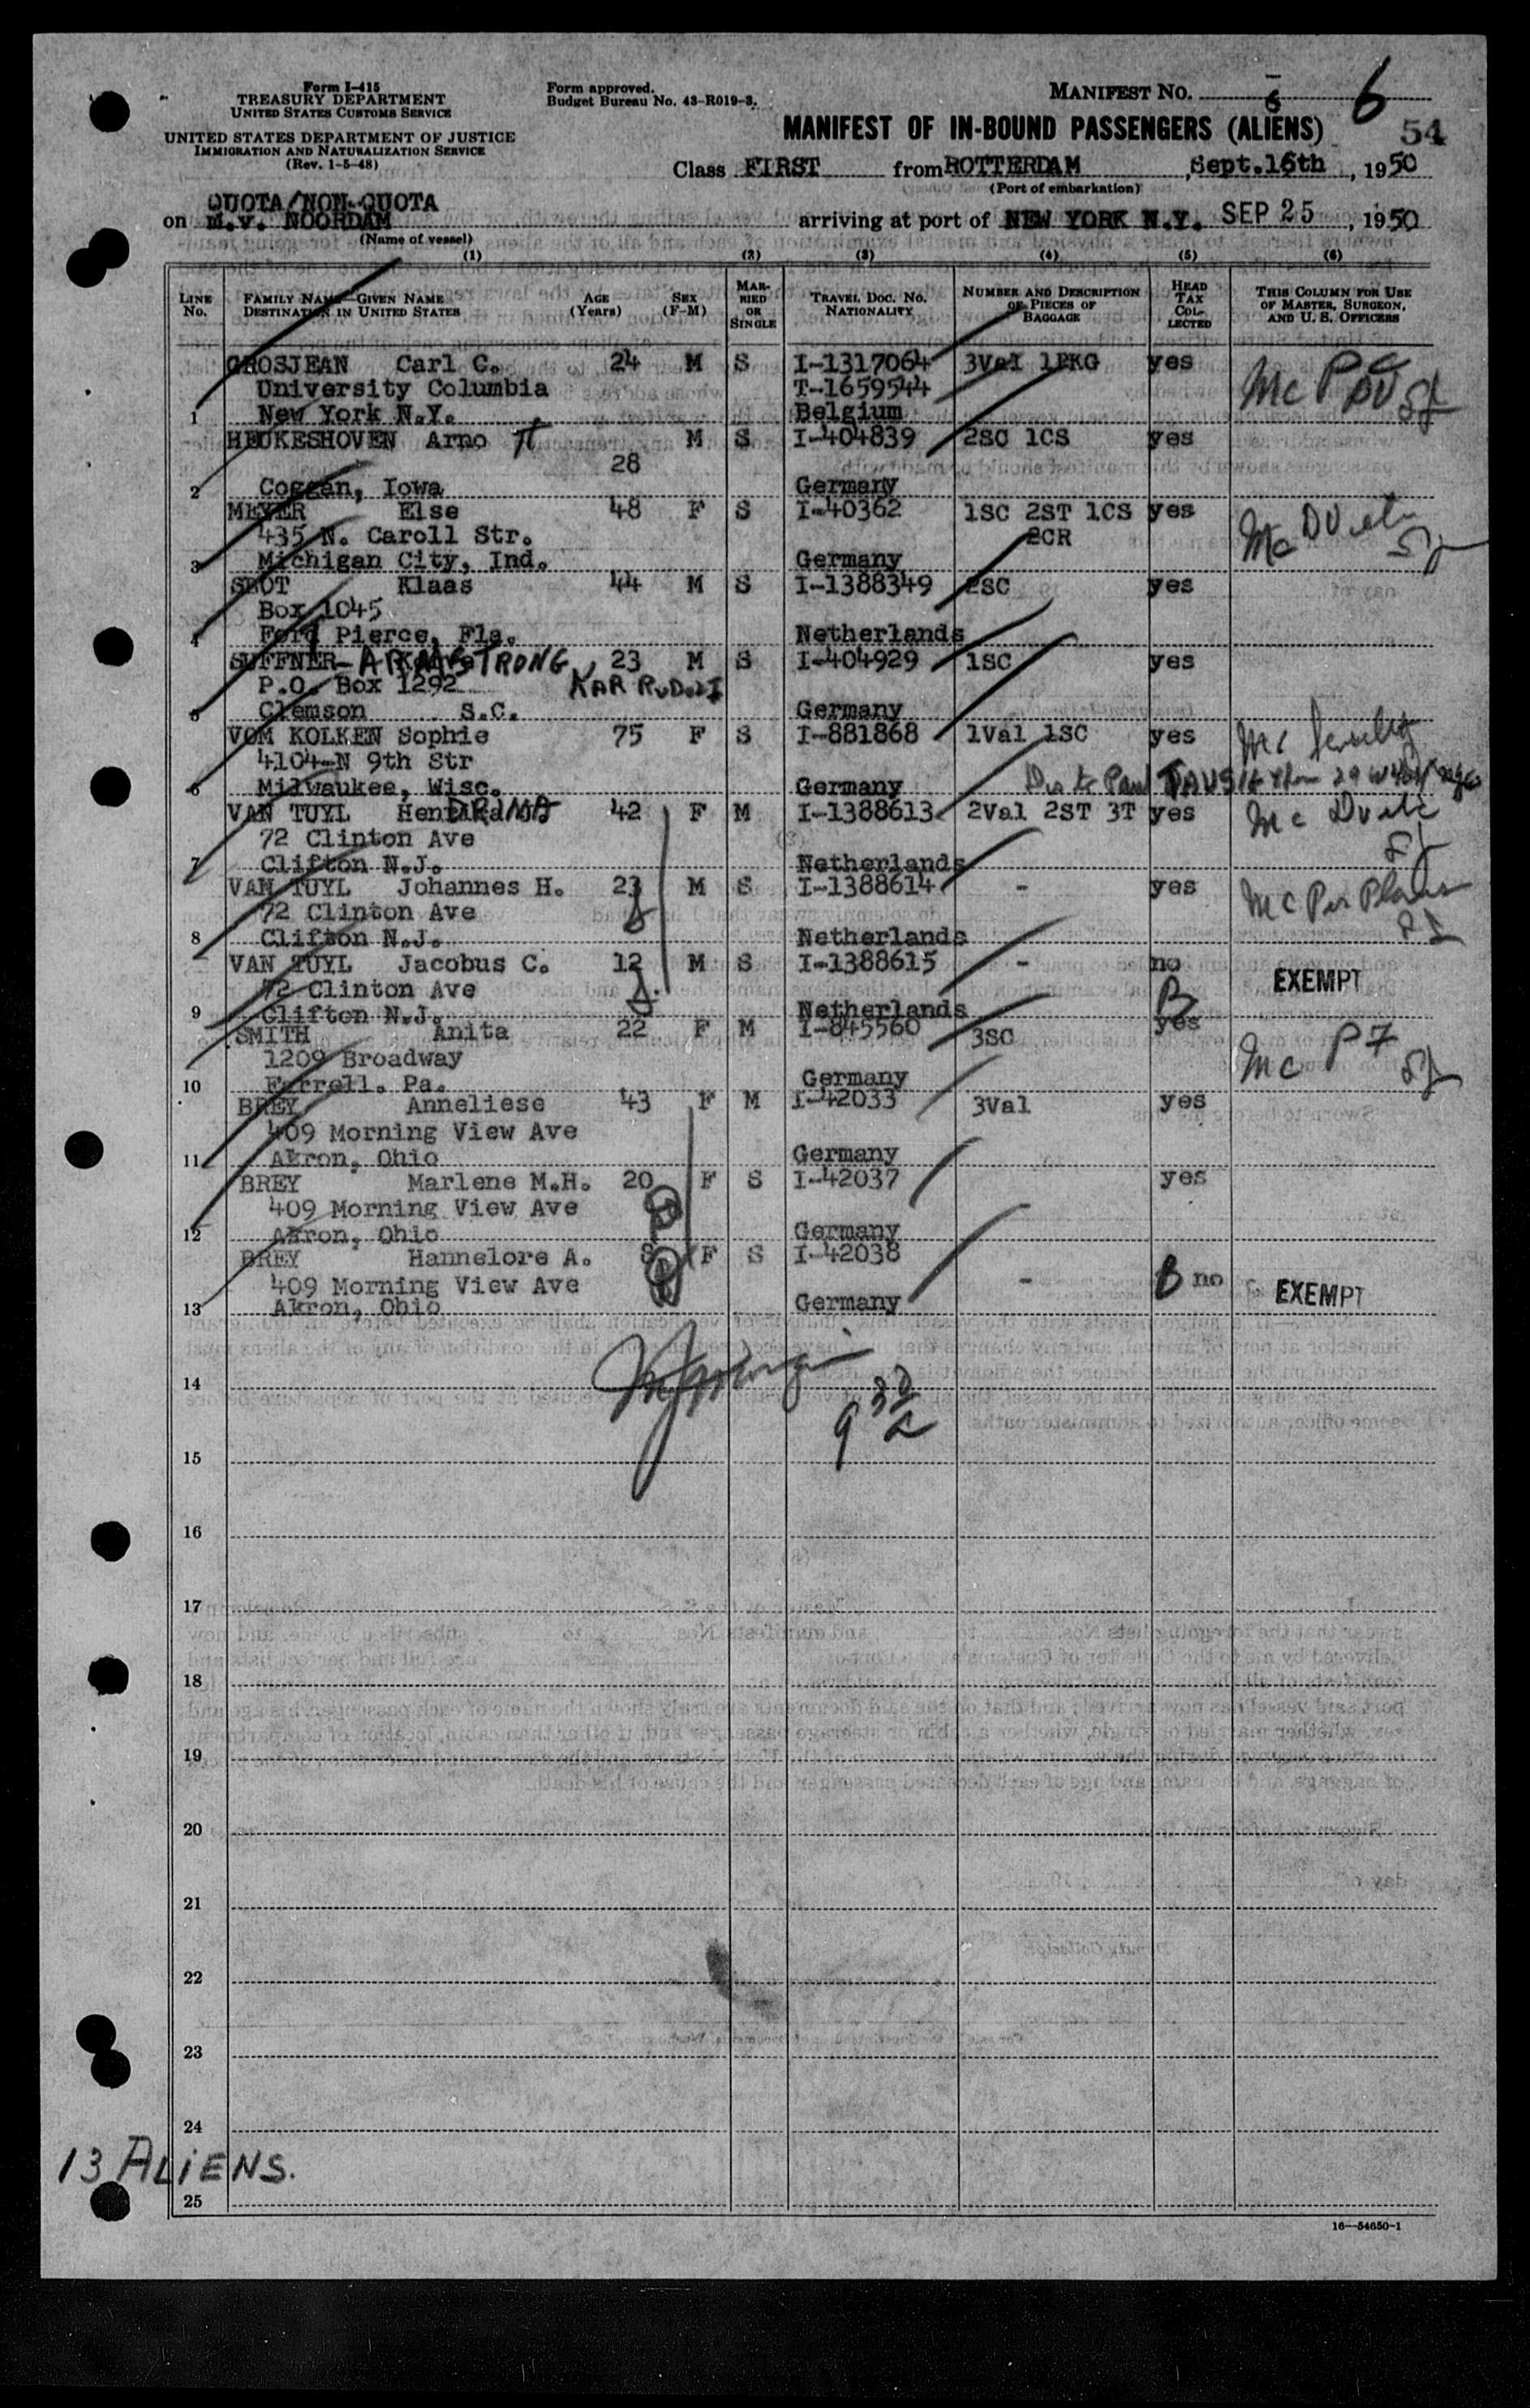 Form I-415
TREASURY DEPARTMENT
UNITED STATES CUSTOMS SERVICE
UNITED STATES DEPARTMENT OF JUSTICE
IMMIGRATION AND NATURALIZATION SERVICE
(Rev. 1-5-48)
Form approved.
Budget Bureau No. 43-R019-3.
MANIFEST No. 6 6
MANIFEST OF IN-BOUND PASSENGERS (ALIENS) 54
Class FIRST from ROTTERDAM, Sept.16th, 1950
(Port of embarkation)
QUOTA/NON-QUOTA
on M.V. NOORDAM arriving at port of NEW YORK N.Y. SEP 25, 1950
(Name of vessel)
(1) (2) (3) (4) (5) (6)
LINE No. FAMILY NAME—GIVEN NAME DESTINATION IN UNITED STATES AGE (Years) SEX (F-M) MARRIED OR SINGLE TRAVEL DOC. NO. NATIONALITY NUMBER AND DESCRIPTION OF PIECES OF BAGGAGE HEAD TAX COLLECTED THIS COLUMN FOR USE OF MASTER, SURGEON, AND U. S. OFFICERS
GROSJEAN Carl C. 24 M S I-1317064 3Val 1PKG yes
University Columbia T-1659544
1 New York N.Y. Belgium
HEUKESHOVEN Arno M S I-404839 2SC 1CS yes
28
2 Coggan, Iowa Germany
MEYER Else 48 F S I-40362 1SC 2ST 1CS yes
435 N. Caroll Str. 2CR
3 Michigan City, Ind. Germany
SBOT Klaas 44 M S I-1388349 2SC yes
Box 1045
4 Ford Pierce, Fla. Netherlands
SUFFNER-ARMSTRONG, 23 M S I-404929 1SC yes
P.O. Box 1292
5 Clemson S.C. Germany
VOM KOLKEN Sophie 75 F S I-881868 1Val 1SC yes
4104-N 9th Str
6 Milwaukee, Wisc. Germany
VAN TUYL 42 F M I-1388613 2Val 2ST 3T yes
72 Clinton Ave
7 Clifton N.J. Netherlands
VAN TUYL Johannes H. 23 M S I-1388614 - yes
72 Clinton Ave
8 Clifton N.J. Netherlands
VAN TUYL Jacobus C. 12 M S I-1388615 - no
72 Clinton Ave EXEMPT
9 Clifton N.J. Netherlands
SMITH Anita 22 F M I-845560 3SC yes
1209 Broadway
10 Farrell. Pa. Germany
BREY Anneliese 43 F M I-42033 3Val yes
409 Morning View Ave
11 Akron, Ohio Germany
BREY Marlene M.H. 20 F S I-42037 yes
409 Morning View Ave -
12 Akron, Ohio Germany
BREY Hannelore A. 8 F S I-42038
409 Morning View Ave - no EXEMPT
13 Akron, Ohio Germany
14
15
16
17
18
19
20
21
22
23
24
13 ALIENS.
25
16—54650-1